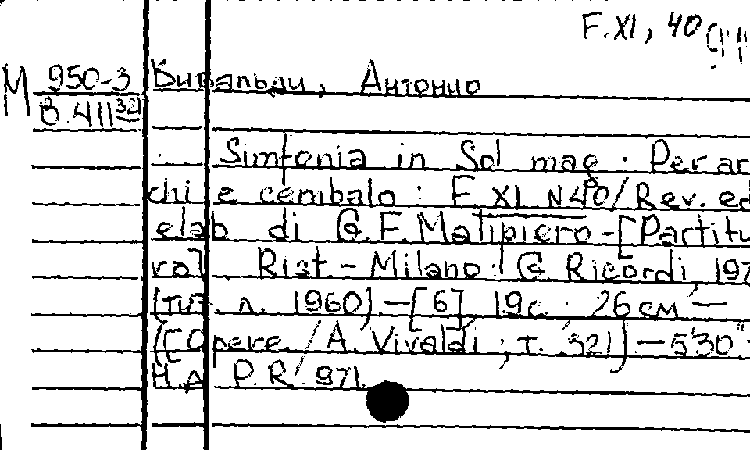 F. XI, 40
М 950-3 Вивальди, Антонио
В.411 321
Simfonia in Sol mag. Per ar
chi e cembalo : F. XI N40 / Rev. ed
elab di G. F. Malipiero.-[Partitu
ra]. Rist.- Milano : G. Ricordi, 197
(тит. л. 1960).-[6], 19 с. 26 см.-
([Opere / A. Vivaldi ; т. 321).-5'30".
Н.д. P.R. 971.